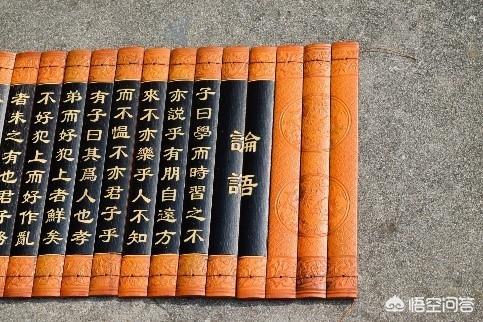 論語
子曰學而時習之不
亦說乎有朋自遠方
來不亦樂乎人不知
而不愠不亦君子乎
有子曰其爲人也孝
弟而好犯上者鮮矣
不好犯上而好作亂
者未之有也君子務
悟空问答